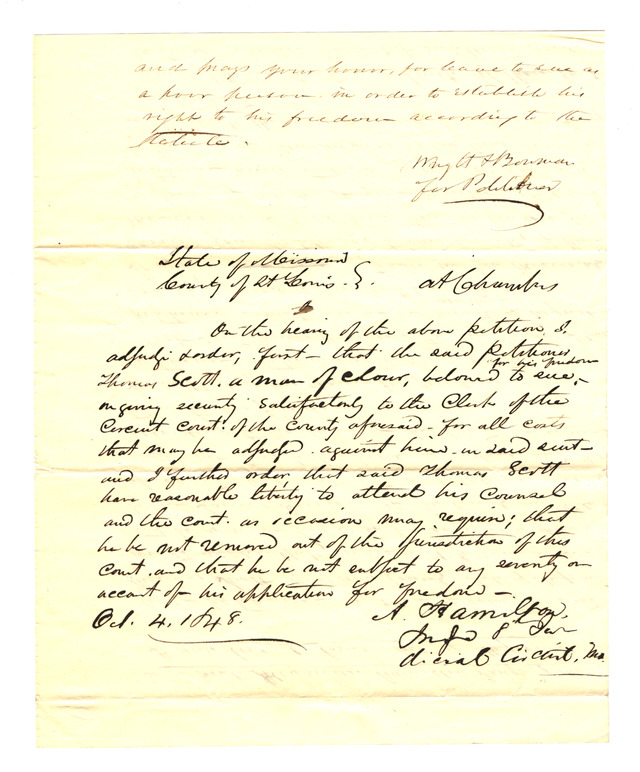 and prays your honor, for leave to sue as
a poor person in order to establish his
right to his freedom according to the
Statute.
& Bowman
for Petitioner
State of Missouri
County of St Louis. at Chambers
On the hearing of the above petition, I
adjudge & order, first – that the said petitioner
for his freedom
Thomas Scott. a man of colour, be allowed to sue,
on giving security satisfactorily to the Clerk of the
Circuit Court of the County aforesaid – for all costs
that may be adjudged against him in said suit –
and I further order that said Thomas Scott
have reasonable liberty to attend his Counsel
and the court as occasion may require; that
he be not removed out of the Jurisdiction of this
court. and that he be not subject to any severity on
account of his application for freedom –.
Oct. 4. 1848. A. Hamilton,
Judge 8 Ju
dicial Circuit, Mo